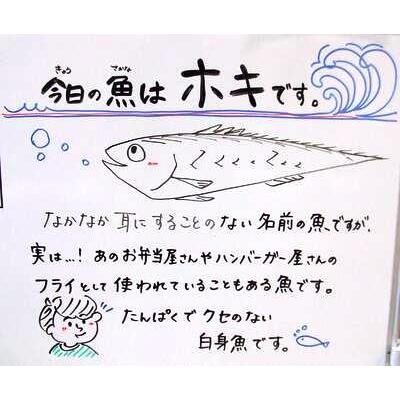 きょう さかな
今日の魚は ホキです。
なかなか耳にすることのない名前の魚ですが、
実は…！あのお弁当屋さんやハンバーガー屋さんの
フライとして使われていることもある魚です。
たんぱくでクセのない
白身魚です。